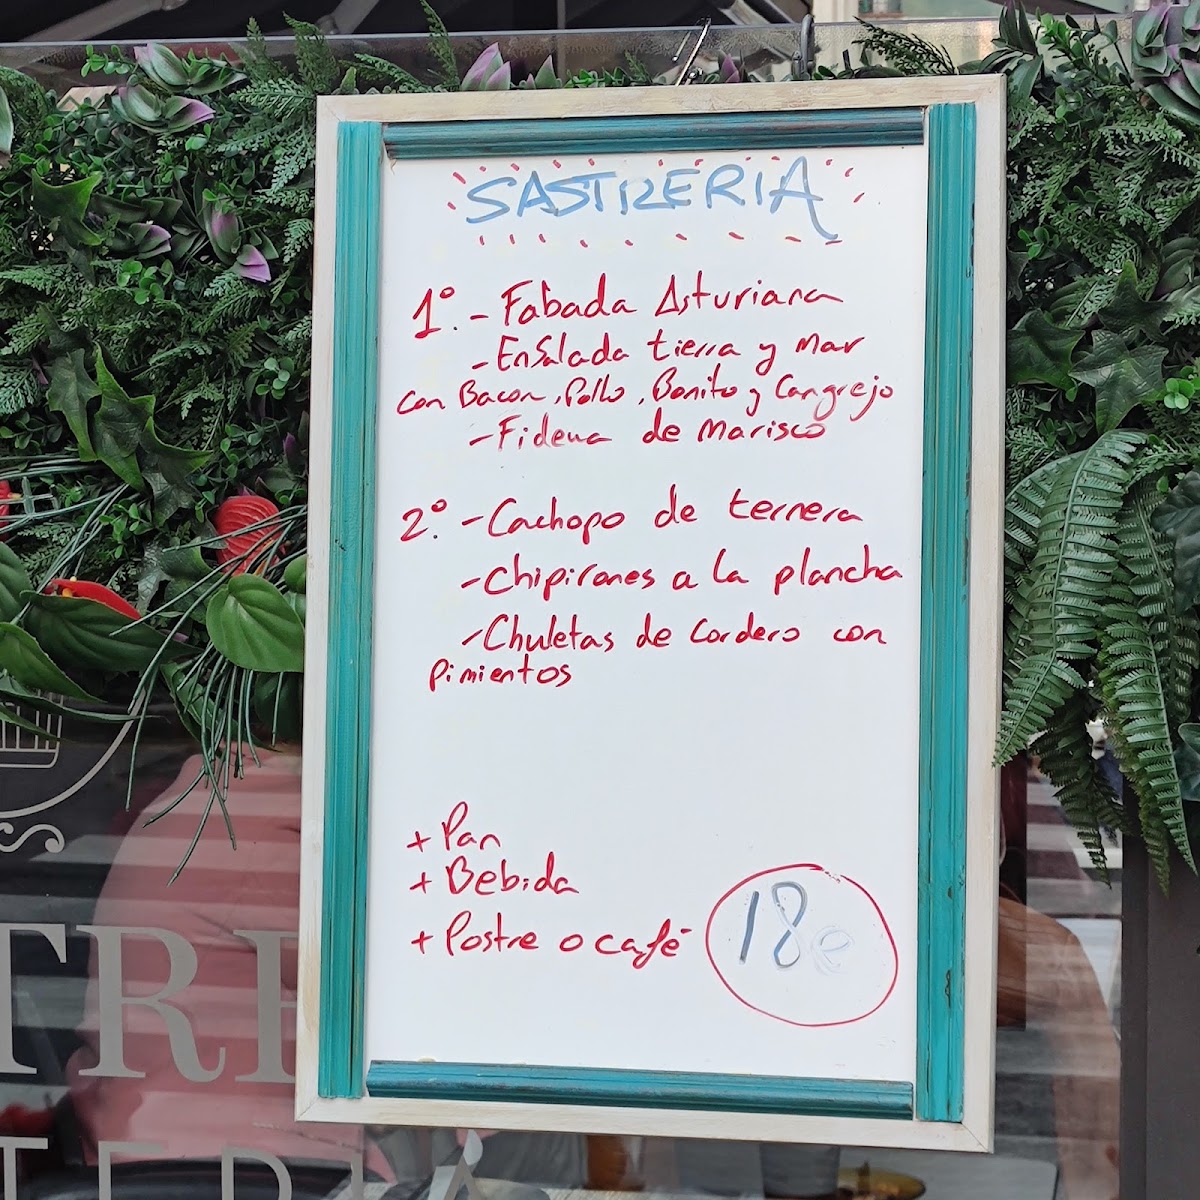 SASTRERIA
1º. - Fabada Asturiana
- Ensalada tierra y mar
con Bacon, Pollo, Bonito y Cangrejo
- Fideua de Marisco
2º. - Cachopo de ternera
- Chipirones a la plancha
- Chuletas de Cordero con
Pimientos
+ Pan
+ Bebida
+ Postre o café
18e
TRE
TERÍA